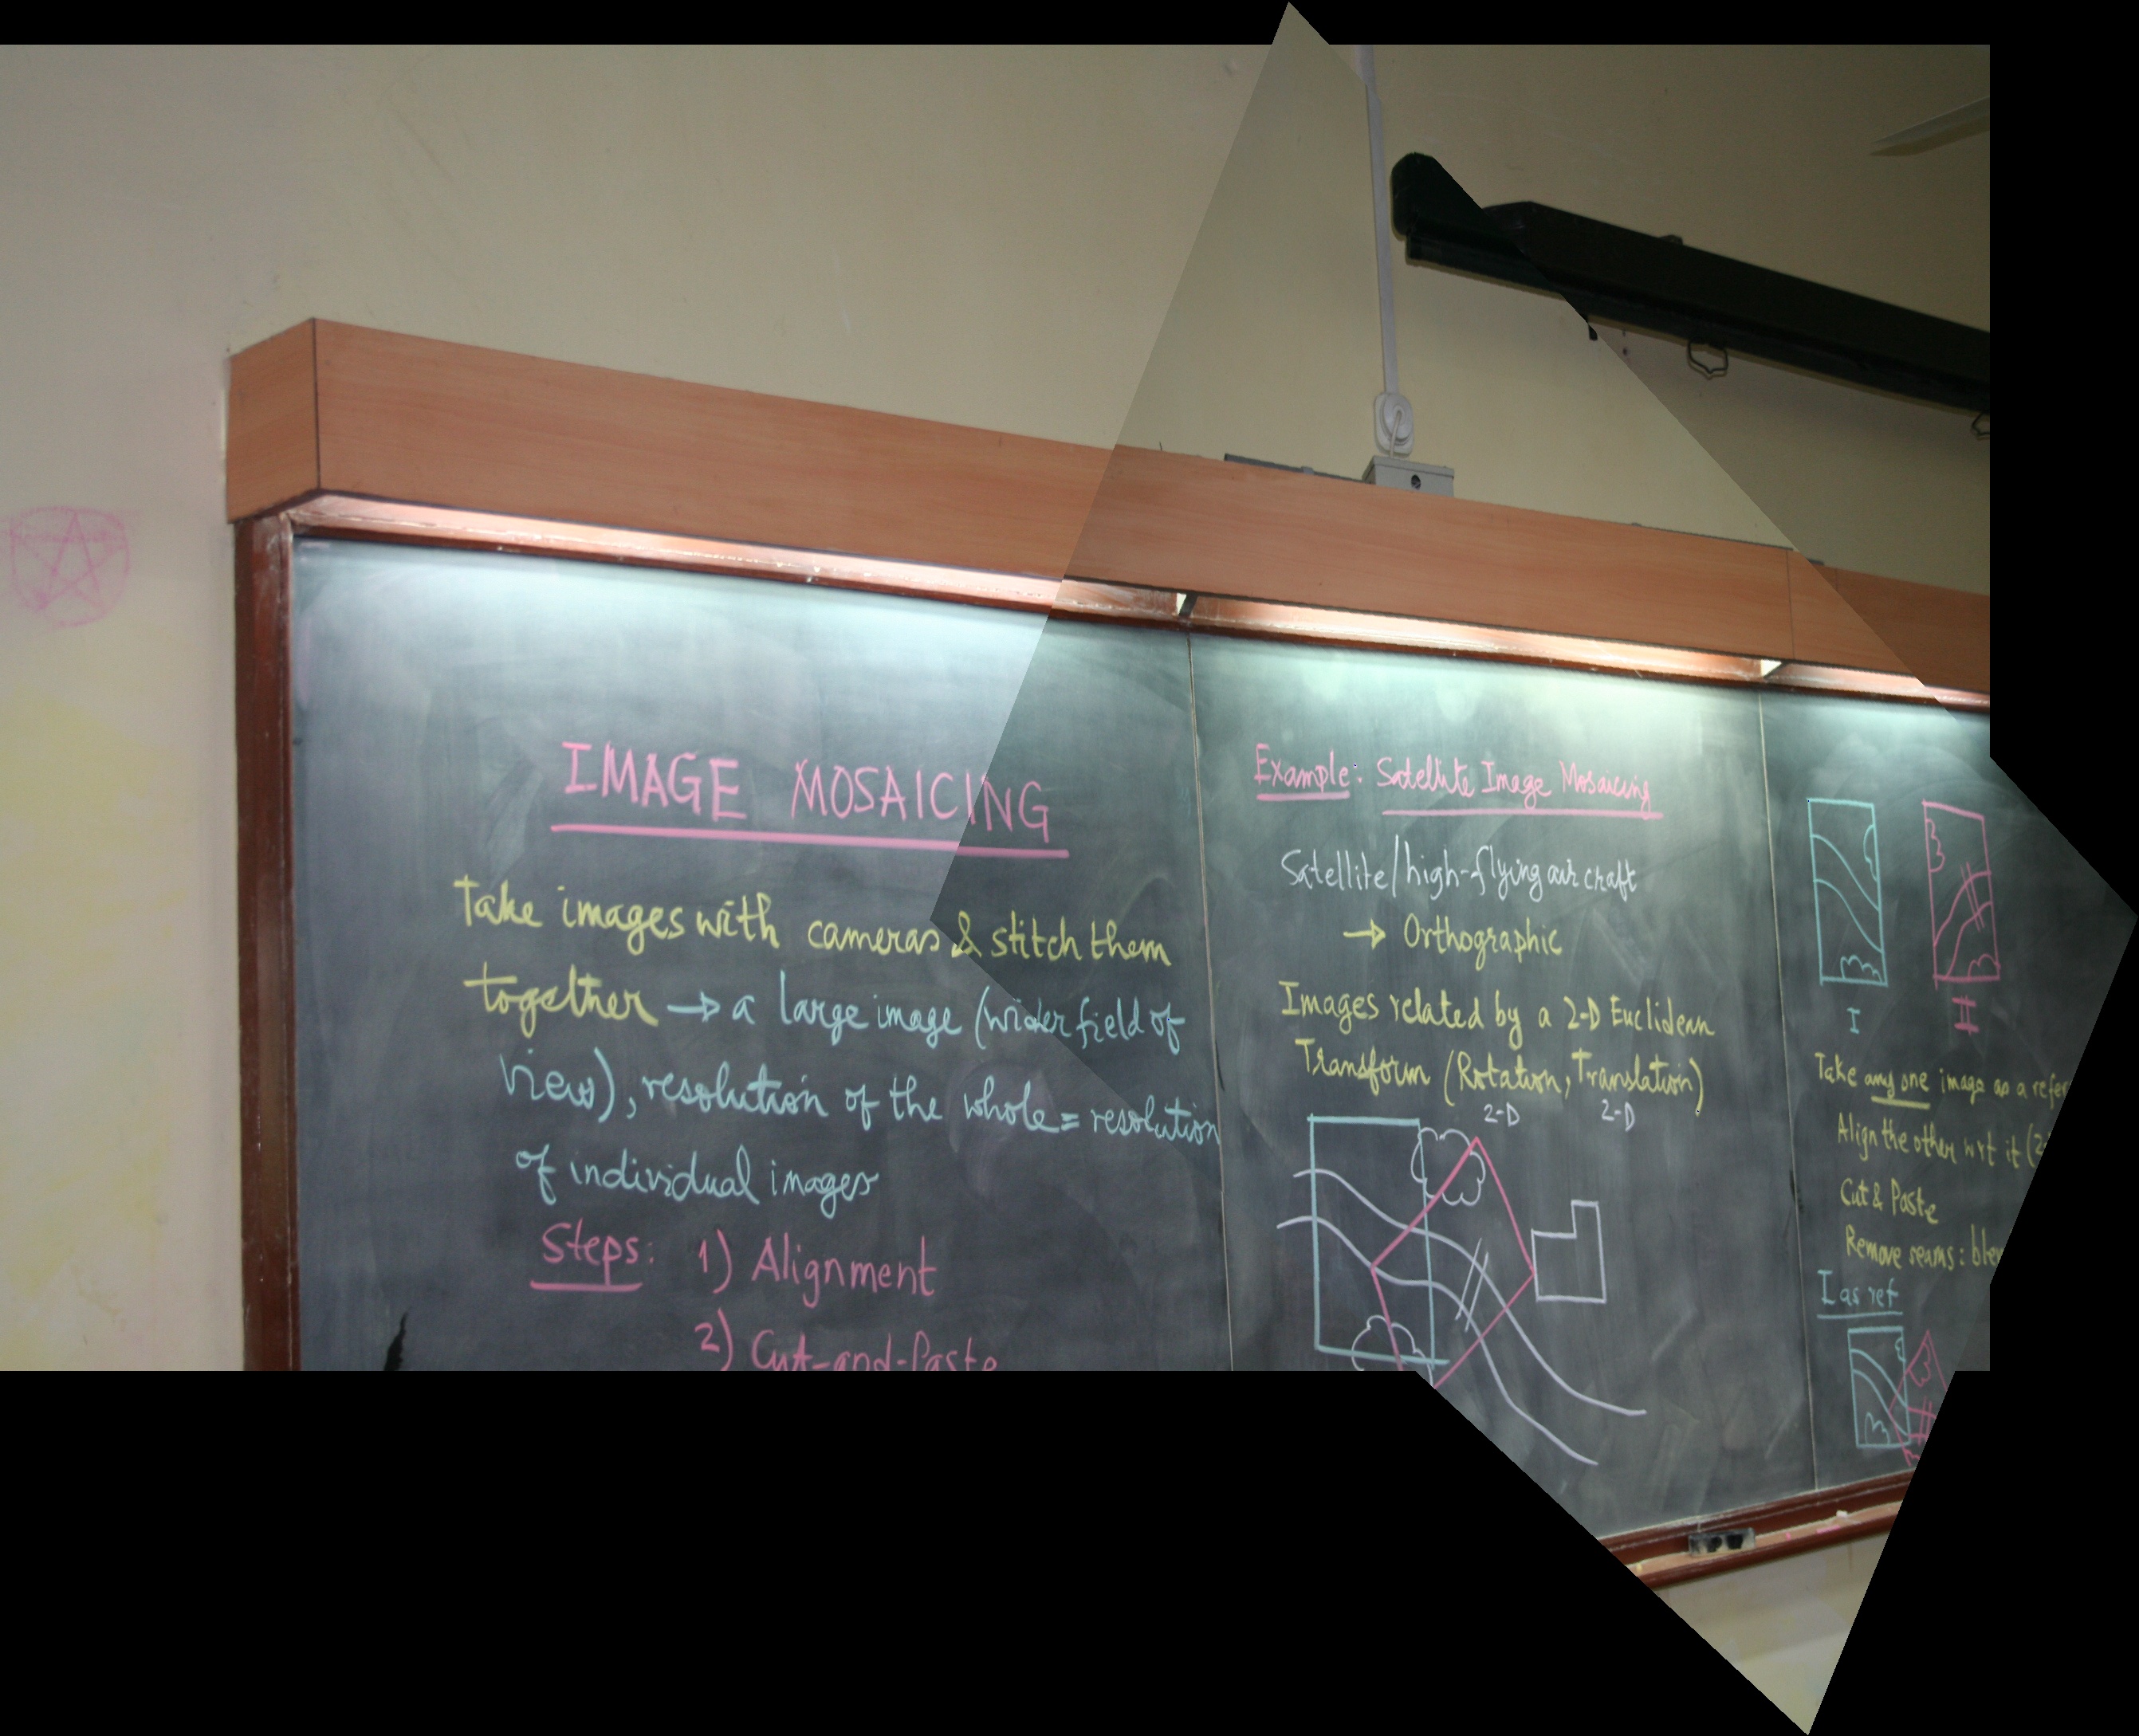 IMAGE MOSAICING
Take images with cameras & stitch them
together → a large image (wider field of
view), resolution of the whole = resolution
of individual images
Steps: 1) Alignment
2) Cut-and-Paste
Example: Satellite Image Mosaicing
Satellite/high-flying air craft
→ Orthographic
Images related by a 2-D Euclidean
Transform (Rotation, Translation)
2-D 2-D
I II
Take any one image as a refer
Align the other wrt it (2-
Cut & Paste
Remove seams: blen
I as ref